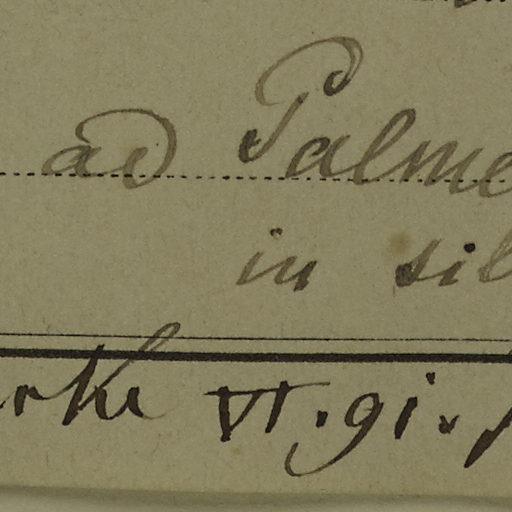 ad Palme
in sil
VI. 91.